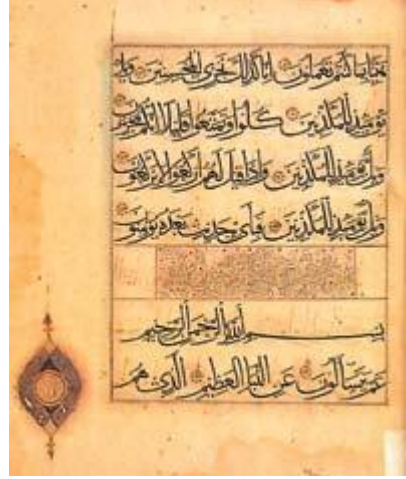 هنيئا بما كنتم تعملون انا كذلك نجزى المحسنين ويل
يومئذ للمكذبين كلوا وتمتعوا قليلا انكم مجرمون
ويل يومئذ للمكذبين واذا قيل لهم اركعوا لا يركعون
ويل يومئذ للمكذبين فبأى حديث بعده يؤمنون
بسم الله الرحمن الرحيم
عم يتسآلون عن النبإ العظيم الذى هم